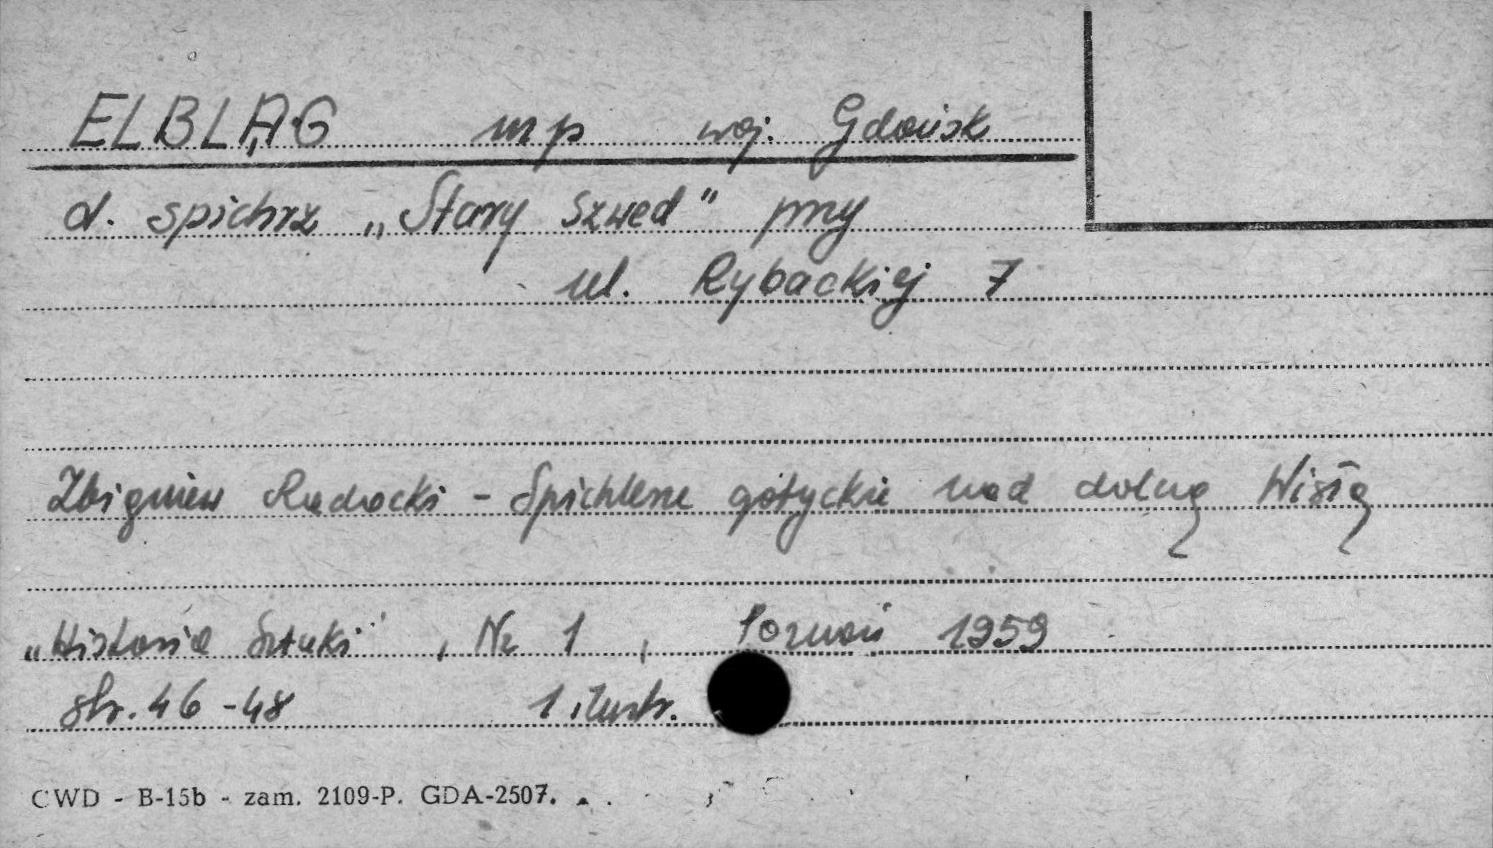 ELBLĄG mp woj. Gdańsk
d. spichrz „Stary Szwed" przy
ul. Rybackiej 7
Zbigniew Radacki - Spichlerze gotyckie nad dolną Wisłą
„Historia Sztuki", Nr 1, Poznań 1959
str. 46-48 1 ilustr.
CWD - B-15b - zam. 2109-P. GDA-2507.